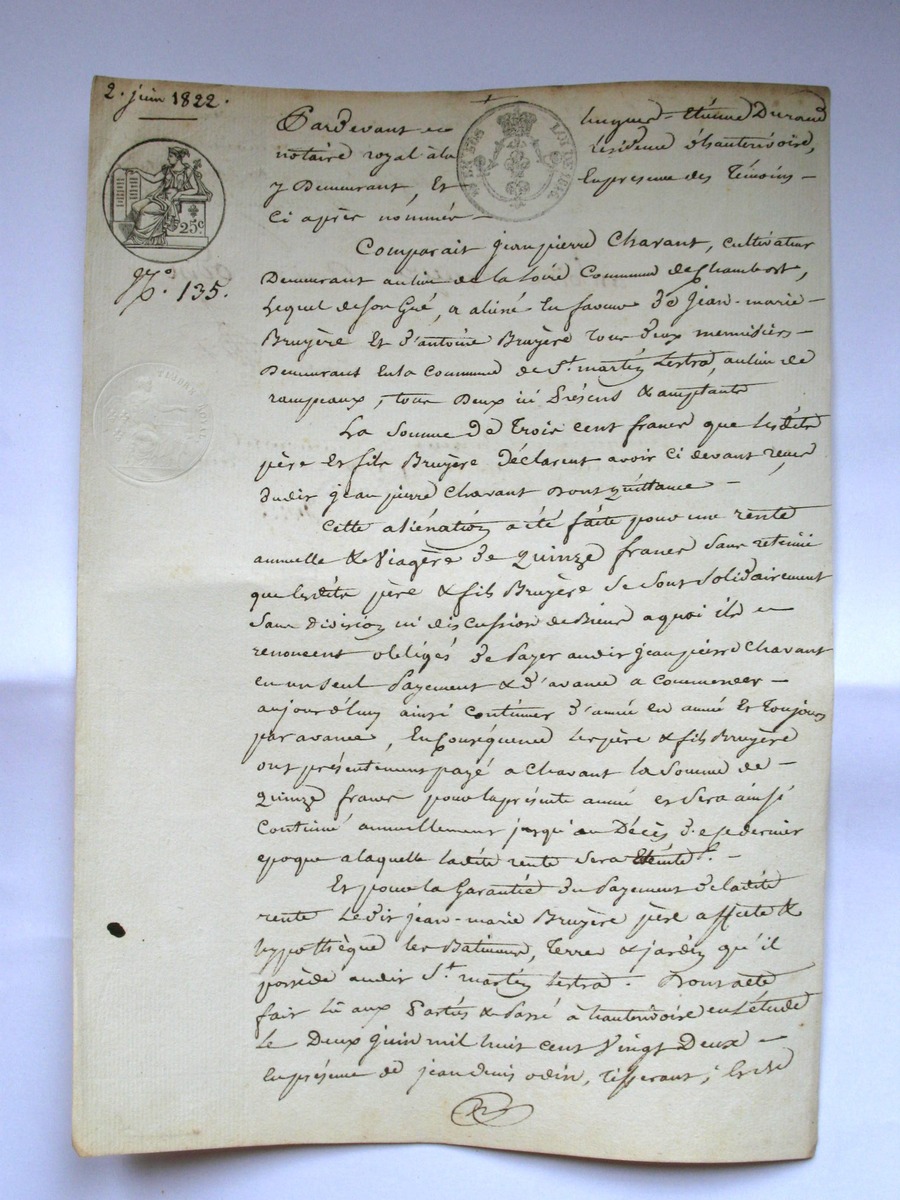 2. juin 1822.
Pardevant me hugues-étienne Durand
notaire royal à la résidence d'hauterivoire,
y Demeurant, Et En présence des Témoins –
Ci après nommés –
25c
N.o 135.
Comparait jean pierre Chavant, cultivateur
Demeurant au lieu de la Loire Commune de Chambost,
Lequel de son Gré, a aliéné En faveur de jean-marie –
Bruyère Et d'antoine Bruyère tous deux menuisiers –
Demeurant En la Commune de St. martin Lestra, au lieu de
rampeaux, tous Deux ici Présens & acceptants
La Somme De Trois cent francs que lesdits
père Et fils Bruyère Déclarent avoir Ci devant reçus
dudit jean pierre Chavant Dont quittance –
Cette aliénation a été faite pour une rente
annuelle & Viagère de quinze francs Sans retenue
que lesdits père & fils Bruyère Se Sont Solidairement
Sans division ni discussion de Biens a quoi ils
renoncent obligés de Payer audit jean pierre Chavant
en un seul Payement & d'avance a commencer –
aujourd'huy ainsi continuer d'année en année Et Toujours
par avance, En Conséquence les père & fils Bruyère
ont présentement payé a Chavant la Somme de –
quinze francs pour la présente année et Sera ainsi
Continué annuellement jusqu'au Décès de ce dernier
epoque a laquelle ladite rente sera Eteinte. –
Et pour la Garantie du Payement de ladite
rente Ledit jean-marie Bruyère père affecte &
hypothèque les Batimens, Terre & jardin qu'il
possède audit St. martin Lestra. Dont acte
fait Lû aux Parties & Passé à hauterivoire en L'étude
Le Deux juin mil huit cent Vingt Deux –
En présence de jean denis odin, tisserant,